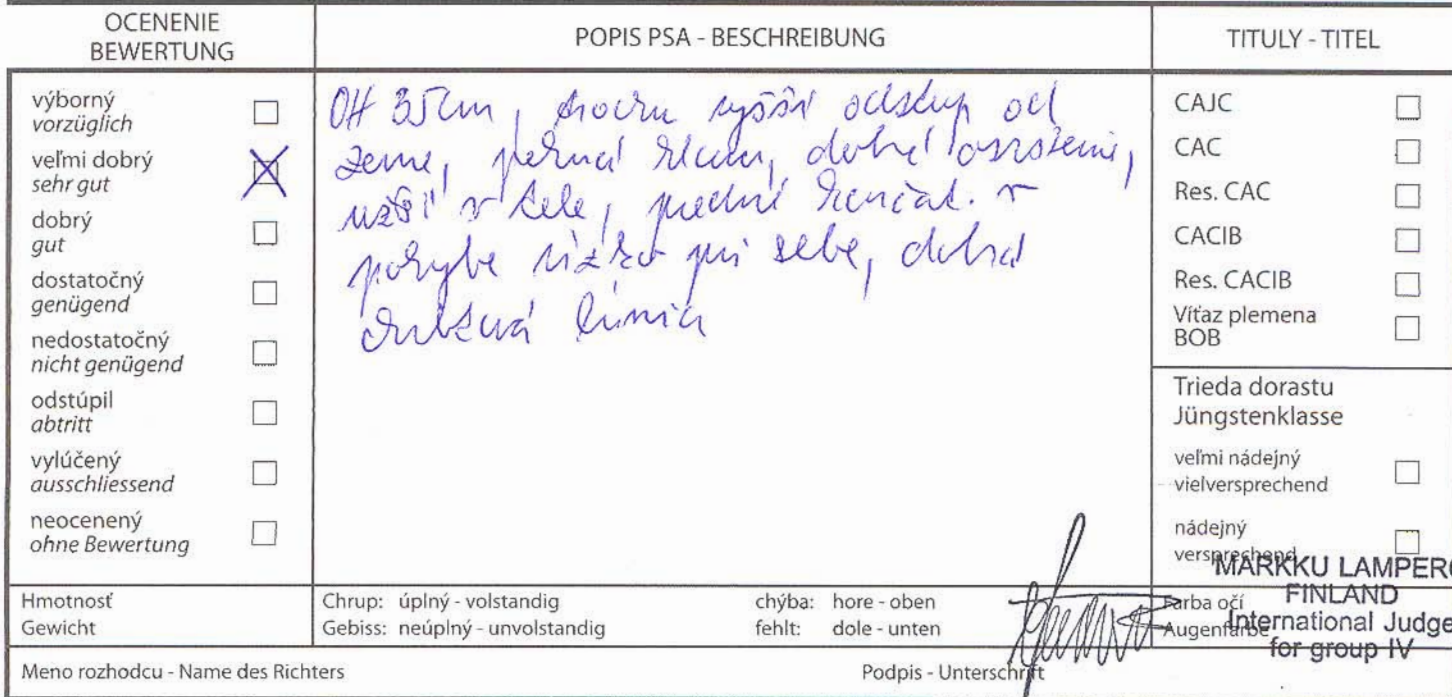 OCENENIE
BEWERTUNG
výborný
vorzüglich
veľmi dobrý
sehr gut
dobrý
gut
dostatočný
genügend
nedostatočný
nicht genügend
odstúpil
abtritt
vylúčený
ausschliessend
neocenený
ohne Bewertung
POPIS PSA - BESCHREIBUNG
OH 35cm, trochu vyšší odstup od
zeme, pekná hlava, dobré osrstenie,
užší v tele, predné končat. v
pohybe nízko pri sebe, dobrá
chrbtová línia
TITULY - TITEL
CAJC
CAC
Res. CAC
CACIB
Res. CACIB
Víťaz plemena
BOB
Trieda dorastu
Jüngstenklasse
veľmi nádejný
vielversprechend
nádejný
versprechend
MARKKU LAMPERG
FINLAND
International Judge
for group IV
Hmotnosť
Gewicht
Chrup: úplný - volstandig chýba: hore - oben
Gebiss: neúplný - unvolstandig fehlt: dole - unten
Farba očí
Augenfarbe
Meno rozhodcu - Name des Richters Podpis - Unterschrift